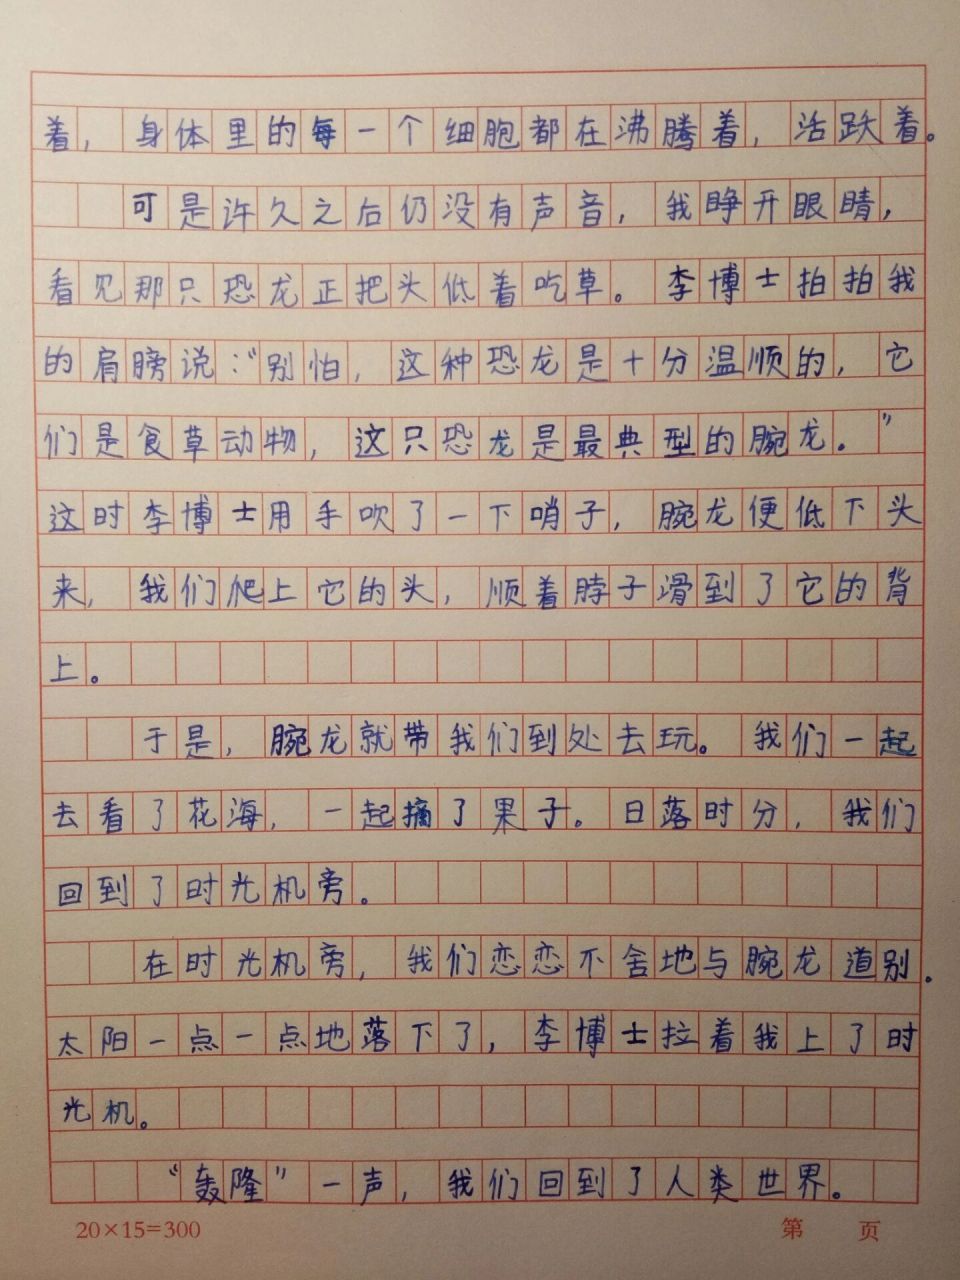 着，身体里的每一个细胞都在沸腾着，活跃着。
可是许久之后仍没有声音，我睁开眼睛，
看见那只恐龙正把头低着吃草。李博士拍拍我
的肩膀说：“别怕，这种恐龙是十分温顺的，它
们是食草动物，这只恐龙是最典型的腕龙。”
这时李博士用手吹了一下哨子，腕龙便低下头
来，我们爬上它的头，顺着脖子滑到了它的背
上。
于是，腕龙就带我们到处去玩。我们一起
去看了花海，一起摘了果子。日落时分，我们
回到了时光机旁。
在时光机旁，我们恋恋不舍地与腕龙道别。
太阳一点一点地落下了，李博士拉着我上了时
光机。
“轰隆”一声，我们回到了人类世界。
20×15=300 第 页